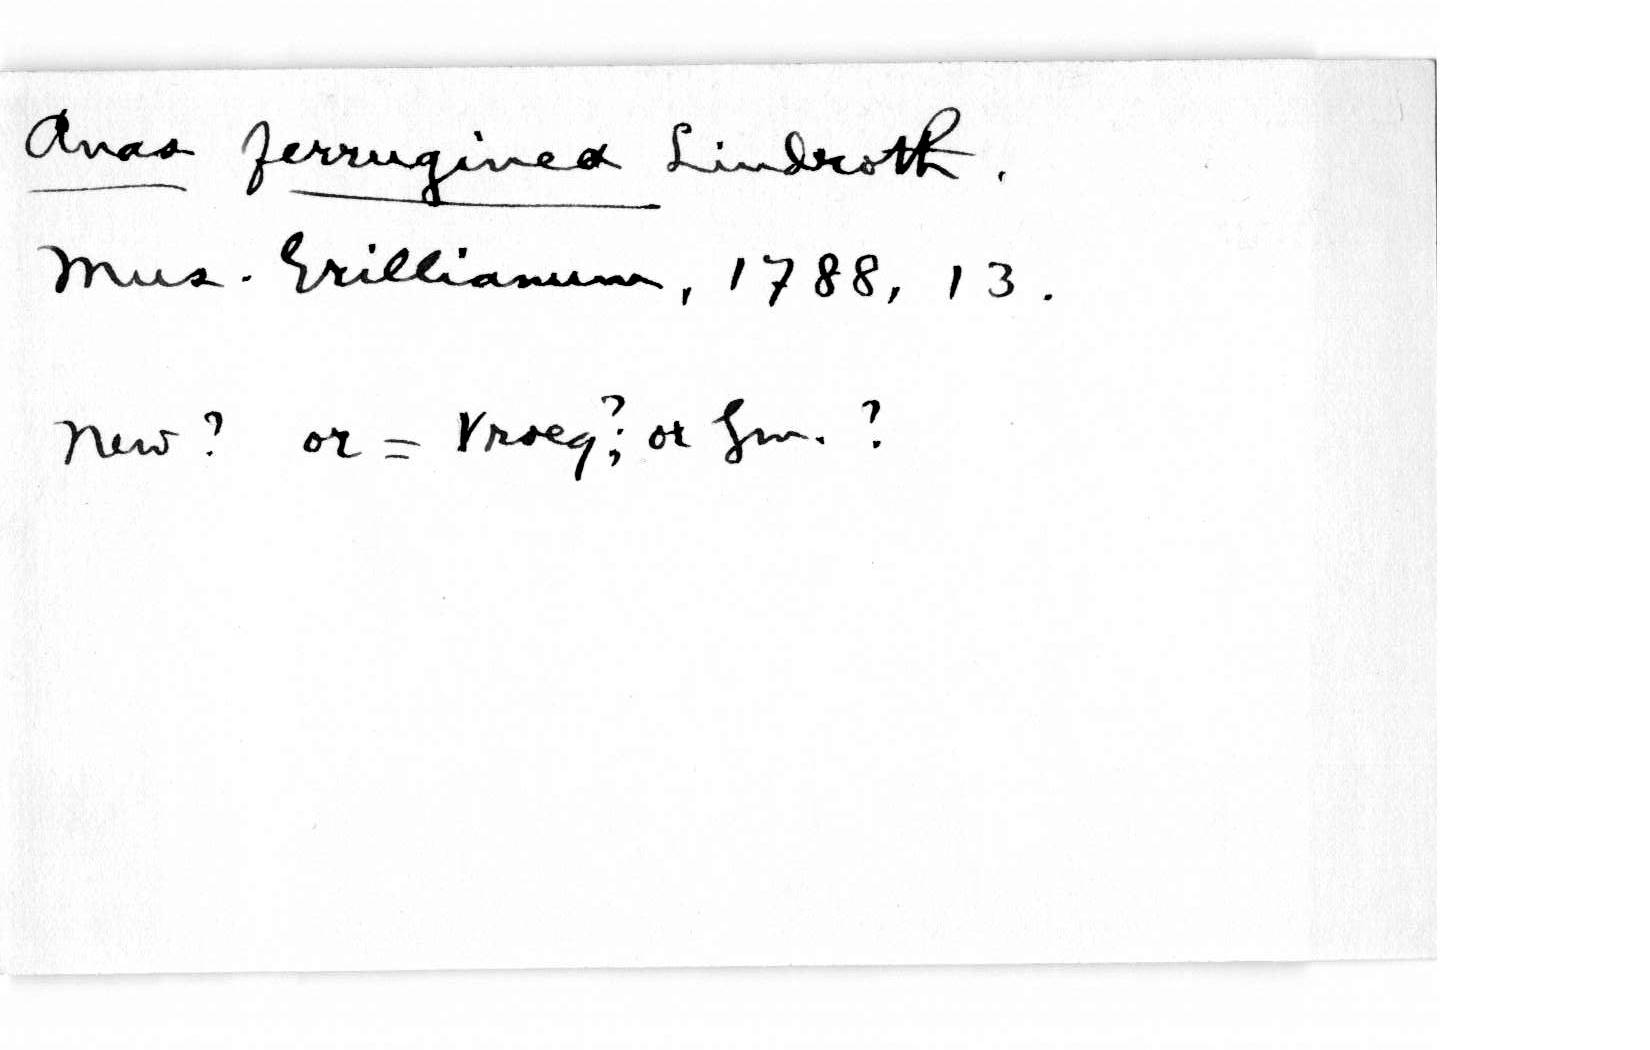 Anas ferruginea Lindroth.
Mus. Grillianum, 1788, 13.
New? or = Vroeg?; or Gm. ?